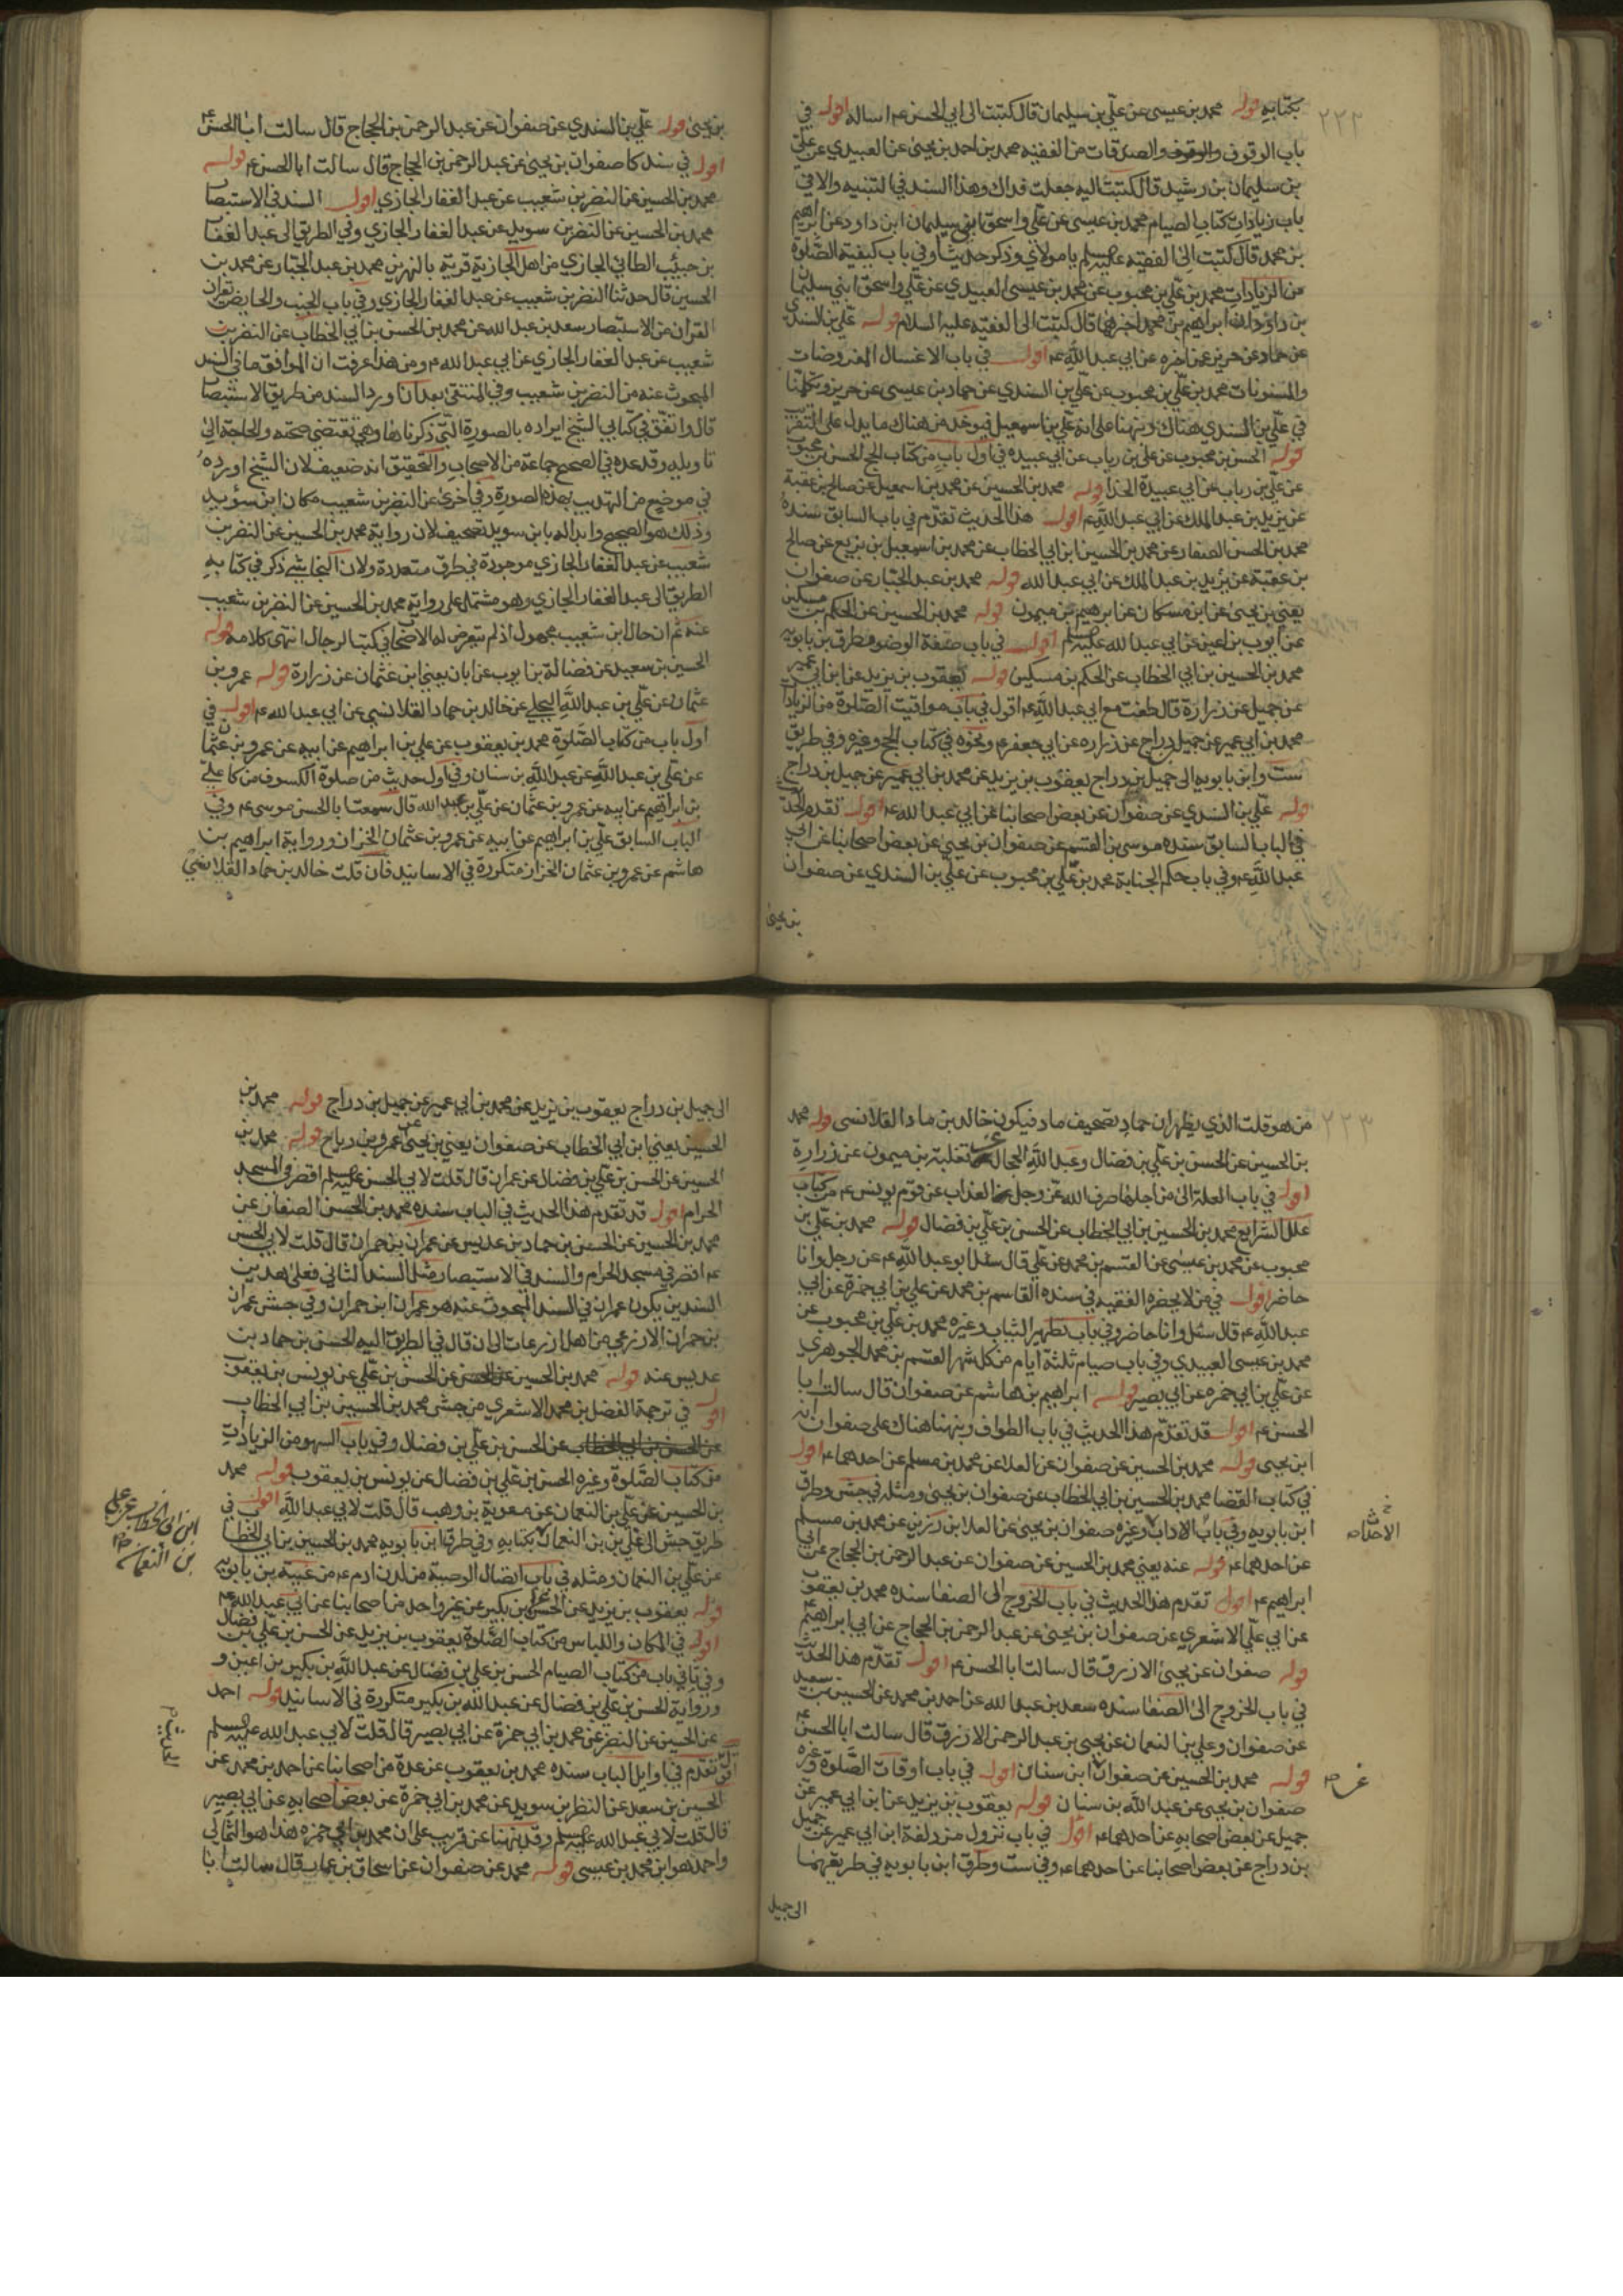 ٢٢٢
بكتابه قوله محمد بن عيسى عن علي بن سليمان قال كتبت الى ابي الحسن ع اساله اقول في
باب الوقوف والصدقات من الفقيه محمد بن احمد بن يحيى عن العبيدي عن علي
بن سليمان بن رشيد قال كتبت اليه جعلت فداك وهذا السند في التنبيه والاتي
باب زيادات كتاب الصيام محمد بن عيسى عن علي واسحق ابني سليمان ابن داود عن ابرهيم
بن محمد قال كتبت الى الفقيه عليه السلم يا مولاي وذكر حديثا وفي باب كيفية الصلوة
من الزيادات محمد بن علي بن محبوب عن محمد بن عيسى العبيدي عن علي واسحق ابني سليمان
بن داود ان ابراهيم بن محمد اخبرهما قال كتبت الى الفقيه عليه السلام قوله علي بن السندي
عن حماد عن حريز عن اخبره عن ابي عبد الله ع اقول في باب الاغسال المفروضات
والمسنونات محمد بن علي بن محبوب عن علي بن السندي عن حماد بن عيسى عن حريز وتكلمنا
في علي بن السندي هناك ونبهنا على انه علي بن اسمعيل فيوخذ من هناك ما يدل على التقريب
قوله الحسن بن محبوب عن علي بن رياب عن ابي عبيده في اول باب من كتاب الحج الحسن بن محبوب
عن علي بن رياب عن ابي عبيدة الحذا قوله محمد بن الحسين عن محمد بن اسمعيل عن صالح بن عقبة
عن يزيد بن عبد الملك عن ابي عبد الله ع اقول هذا الحديث تقدم في باب السابق سنده
محمد بن الحسن الصفار عن محمد بن الحسين ابن ابي الخطاب عن محمد بن اسمعيل بن بزيع عن صالح
بن عقبة عن يزيد بن عبد الملك عن ابي عبد الله قوله محمد بن عبد الجبار عن صفوان
يعني بن يحيى عن ابن مسكان عن ابرهيم بن ميمون قوله محمد بن الحسين عن الحكم بن مسكين
عن ايوب بن اعين عن ابي عبد الله عليه السلم اقول في باب صفة الوضو وطرق بن بابويه
محمد بن الحسين بن ابي الخطاب عن الحكم بن مسكين قوله يعقوب بن يزيد عن ابن ابي عمير
عن جميل عن زرارة قال طفت مع ابي عبد الله ع اقول في باب مواقيت الصلوة من الزيادات
محمد بن ابي عمير عن جميل دراج عن زراره عن ابي جعفر ع ونحوه في كتاب الحج وغيره وفي طريق
ست وابن بابويه الى جميل بن دراج يعقوب بن يزيد عن محمد بن ابي عمير عن جميل بن دراج
قوله علي بن السندي عن صفوان عن بعض اصحابنا عن ابي عبد الله ع اقول تقدم الحديث
في الباب السابق سنده موسى بن القسم عن صفوان بن يحيى عن بعض اصحابنا عن ابي
عبد الله ع وفي باب حكم الجنابة محمد بن علي بن محبوب عن علي بن السندي عن صفوان
بن يحيى
بن يحيى قوله علي بن السندي عن صفوان عن عبد الرحمن بن الحجاج قال سالت ابا الحسن ع
اقول في سند كا صفوان بن يحيى عن عبد الرحمن بن الحجاج قال سالت ابا الحسن ع قوله
محمد بن الحسين عن النضر بن شعيب عن عبد الغفار الجازي اقول السند في الاستبصار
محمد بن الحسين عن النضر بن سويد عن عبد الغفار الجازي وفي الطريق الى عبد الغفار
بن حبيب الطائي الجازي من اهل الجازية قرية بالنهرين محمد بن عبد الجبار عن محمد بن
الحسين قال حدثنا النضر بن شعيب عن عبد الغفار الجازي وفي باب الجنب والحايض تقران
القران من الاستبصار سعد بن عبد الله عن محمد بن الحسن بن ابي الخطاب عن النضر بن
شعيب عن عبد الغفار الجازي عن ابي عبد الله ع ومن هذا عرفت ان الموافق ما في السند
المبحوث عنه من النضر بن شعيب وفي المنتقى بعد ان اورد السند من طريق الاستبصار
قال واتفق في كتابي الشيخ ايراده بالصورة التي ذكرناها وهي تقتضي صحته والحاجة الى
تاويله وقد عده في الصحيح جماعة من الاصحاب والتحقيق انه ضعيف لان الشيخ اورده
في موضع من التهذيب بهذه الصورة وفي اخرى عن النضر بن شعيب مكان ابن سويد
وذلك هو الصحيح وابداله بابن سويد تصحيف لان رواية محمد بن الحسين عن النضر بن
شعيب عن عبد الغفار الجازي موجودة في طرق متعددة ولان النجاشي ذكر في كتابه
الطريق الى عبد الغفار الجازي وهو مشتمل على رواية محمد بن الحسين عن النضر بن شعيب
عنه ثم ان حال ابن شعيب مجهول اذ لم يتعرض له الاصحاب في كتب الرجال انتهى كلامه قوله
الحسين بن سعيد عن فضالة بن ايوب عن ابان يعني ابن عثمان عن زرارة قوله عمرو بن
عثمان عن علي بن عبد الله البجلي عن خالد بن حماد القلانسي عن ابي عبد الله ع اقول في
اول باب من كتاب الصلوة محمد بن يعقوب عن علي بن ابراهيم عن ابيه عن عمرو بن عثمان
عن علي بن عبد الله عن عبد الله بن سنان وفي اول حديث من صلوة الكسوف من كا علي
بن ابراهيم عن ابيه عن عمرو بن عثمان عن علي بن عبد الله قال سمعت ابا الحسن موسى ع وفي
الباب السابق علي بن ابراهيم عن ابيه عن عمرو بن عثمان الخزاز ورواية ابراهيم بن
هاشم عن عمرو بن عثمان الخزاز متكررة في الاسانيد فان قلت خالد بن حماد القلانسي
٢٢٣
من هو قلت الذي يظهر ان حماد تصحيف ماد فيكون خالد بن ماد القلانسي قوله محمد
بن الحسين عن الحسن بن علي بن فضال وعبد الله الحجال عن ثعلبة بن ميمون عن زرارة
اقول في باب العلة التي من اجلها صرف الله عز وجل العذاب عن قوم يونس ع من كتاب
علل الشرايع محمد بن الحسين بن ابي الخطاب عن الحسن بن علي بن فضال قوله محمد بن علي بن
محبوب عن محمد بن عيسى عن القسم بن محمد عن علي قال سئل ابو عبد الله ع عن رجل وانا
حاضر اقول في من لا يحضره الفقيه في سنده القاسم بن محمد عن علي بن ابي حمزة عن ابي
عبد الله ع قال سئل وانا حاضر وفي باب تطهير الثياب وغيره محمد بن علي بن محبوب عن
محمد بن عيسى العبيدي وفي باب صيام ثلثة ايام من كل شهر القسم بن محمد الجوهري
عن علي بن ابي حمزه عن ابي بصير قوله ابراهيم بن هاشم عن صفوان قال سالت ابا
الحسن ع اقول قد تقدم هذا الحديث في باب الطواف ونبهنا هناك على صفوان انه
ابن يحيى قوله محمد بن الحسين عن صفوان عن العلا عن محمد بن مسلم عن احدهما ع اقول
في كتاب القضا محمد بن الحسين بن ابي الخطاب عن صفوان بن يحيى ومثله في جش وطرق
ابن بابويه وفي باب الاداب وغيره صفوان بن يحيى عن العلا بن رزين عن محمد بن مسلم
عن احدهما ع قوله عنه يعني محمد بن الحسين عن صفوان عن عبد الرحمن بن الحجاج عن ابي
ابراهيم ع اقول تقدم هذا الحديث في باب الخروج الى الصفا سنده محمد بن يعقوب
عن ابي علي الاشعري عن صفوان بن يحيى عن عبد الرحمن بن الحجاج عن ابي ابراهيم ع
قوله صفوان عن يحيى الازرق قال سالت ابا الحسن ع اقول تقدم هذا الحديث
في باب الخروج الى الصفا سنده سعد بن عبد الله عن احمد بن محمد عن الحسين بن سعيد
عن صفوان وعلي بن النعمان عن يحيى بن عبد الرحمن الازرق قال سالت ابا الحسن ع
قوله محمد بن الحسين عن صفوان ابن سنان اقول في باب اوقات الصلوة وغيره
صفوان بن يحيى عن عبد الله بن سنان قوله يعقوب بن يزيد عن ابن ابي عمير عن
جميل عن بعض اصحابه عن احدهما ع اقول في باب نزول مزدلفة ابن ابي عمير عن جميل
بن دراج عن بعض اصحابنا عن احدهما ع وفي ست وطرق ابن بابويه في طريقهما
الى جميل
الى جميل بن دراج يعقوب بن يزيد عن محمد بن ابي عمير عن جميل بن دراج قوله محمد بن
الحسين يعني ابن ابي الخطاب عن صفوان يعني بن يحيى عن عمرو بن رباح قوله محمد بن
الحسين عن الحسن بن علي بن فضال عن عمران قال قلت لابي الحسن عليه السلم اقصر في المسجد
الحرام اقول قد تقدم هذا الحديث في الباب سنده محمد بن الحسن الصفار عن
محمد بن الحسين عن الحسن بن حماد بن عديس عن عمران بن حمران قال قلت لابي الحسن
ع اقصر في مسجد الحرام والسند في الاستبصار مثل السند الثاني فعلى هذين
السندين يكون عمران في السند المبحوث عنه هو عمران ابن حمران وفي جش عمران
بن حمران الاذرعي من اهل اذرعات الى ان قال في الطريق اليه الحسن بن حماد بن
عديس عنه قوله محمد بن الحسين عن الحسن بن علي عن يونس بن يعقوب
اقول في ترجمة الفضل بن محمد الاشعري من جش محمد بن الحسين بن ابي الخطاب
عن الحسن بن علي بن فضال وفي باب السهو من الزيادات
من كتاب الصلوة وغيره الحسن بن علي بن فضال عن يونس بن يعقوب قوله محمد
بن الحسين عن علي بن النعمان عن معوية بن وهب قال قلت لابي عبد الله اقول في
طريق جش الى علي بن النعمان بكتابه وفي طرق ابن بابويه محمد بن الحسين بن ابي الخطاب
عن علي بن النعمان ومثله في باب اتصال الوصية من لدن ادم ع من غيبة بن بابويه
قوله يعقوب بن يزيد عن الحسن بن علي بن بكير عن غير واحد من اصحابنا عن ابي عبد الله ع
اقول في المكان واللباس من كتاب الصلوة يعقوب بن يزيد عن الحسن بن علي بن فضال
وفي ثاني باب من كتاب الصيام الحسن بن علي بن فضال عن عبد الله بن بكير بن اعين و
ورواية الحسن بن علي بن فضال عن عبد الله بن بكير متكررة في الاسانيد قوله احمد
عن الحسين عن النضر عن محمد بن ابي حمزة عن ابي بصير قال قلت لابي عبد الله عليه السلم
تقدم في اوايل الباب سنده محمد بن يعقوب عن عدة من اصحابنا عن احمد بن محمد عن
الحسين بن سعيد عن النظر بن سويد عن محمد بن ابي حمزة عن بعض اصحابه عن ابي بصير
قال قلت لابي عبد الله عليه السلم وقد نبهنا عن قريب على ان محمد بن ابي حمزه هذا هو الثمالي
واحمد هو ابن محمد بن عيسى قوله محمد عن صفوان عن اسحاق بن عمار قال سالت ابا